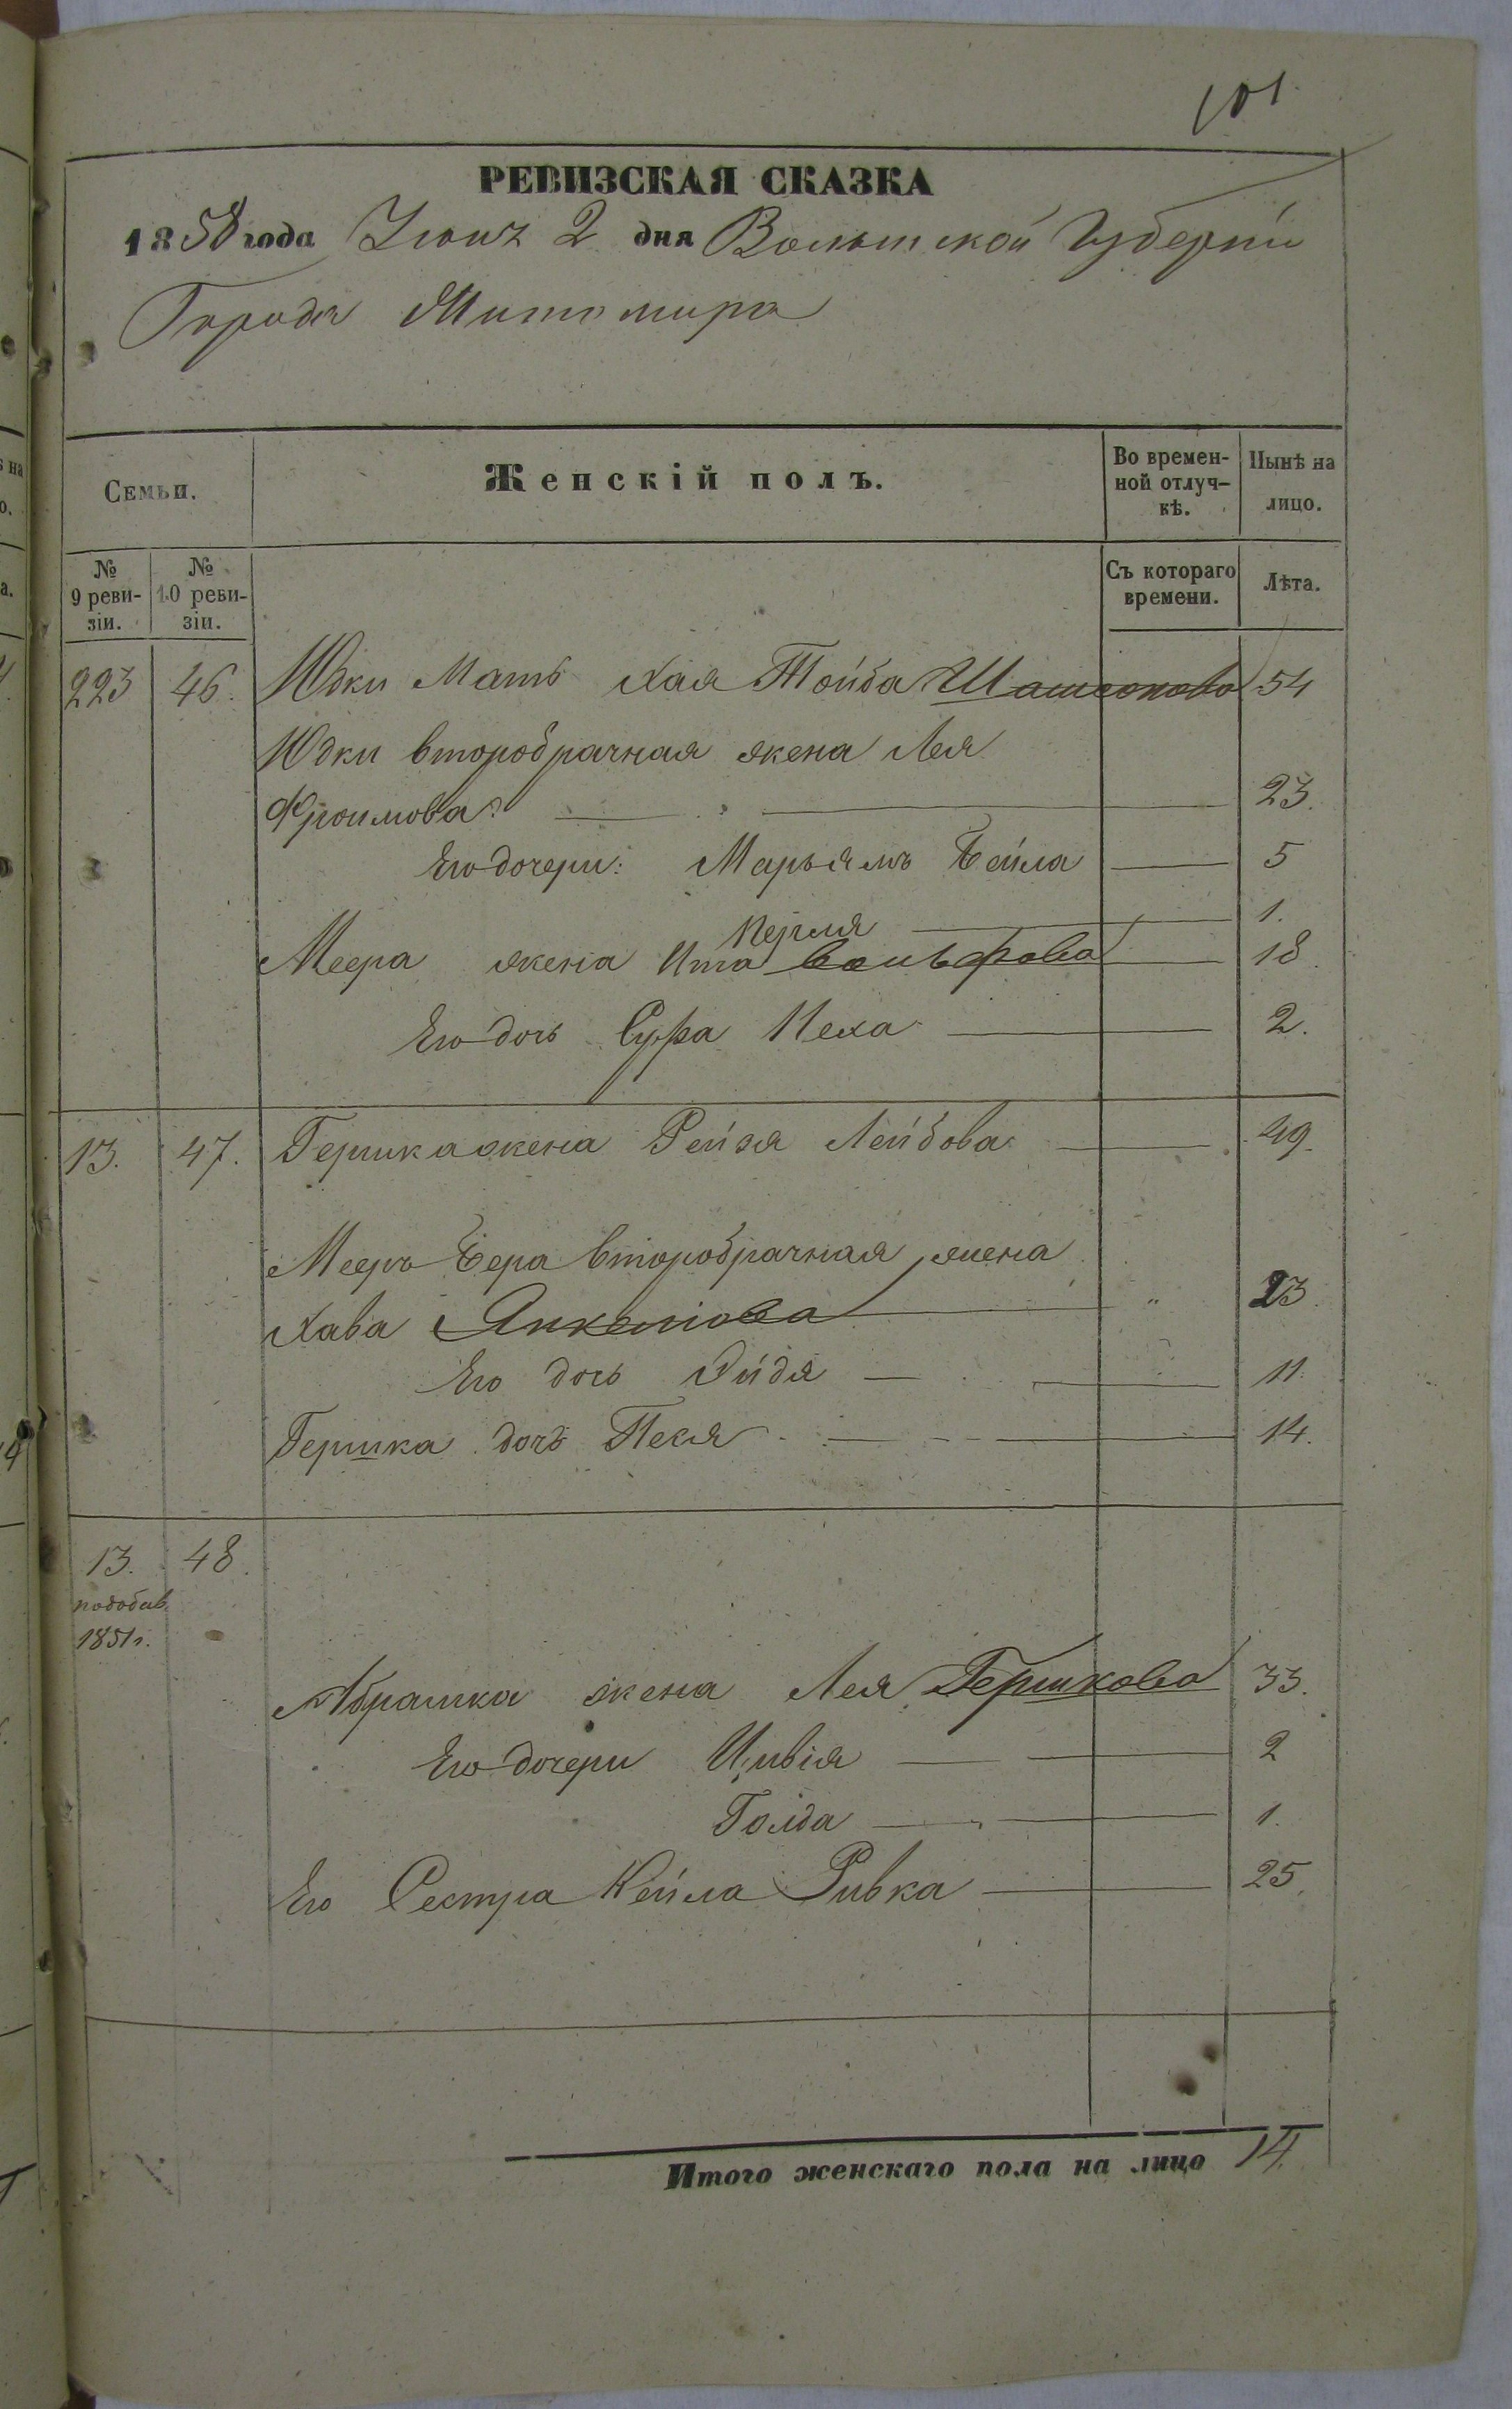 101
РЕВИЗСКАЯ СКАЗКА
1858 года Іюня 2 дня Волынской Губерніи
Города Житомира
Семьи. Женскій полъ. Во времен- Нынѣ на
ной отлуч- лицо.
кѣ.
№ № Съ котораго Лѣта.
9 реви- 10 реви- времени.
зіи. зіи.
223 46. Юдки Мать Хая Тойба Шамсонова 54
Юдки второбрачная жена Лея
Фроимова 23.
Его дочери: Марьямъ Бейла 5
Перля 1.
Меера жена Ита Вольфова 18.
Его дочь Сура Неха 2.
13. 47. Гершка жена Рейзя Лейбова 49.
Мееръ Бера второбрачная жена
Хава Янкелиова 23.
Его дочь Эйдя 11.
Гершка дочь Песя 14.
13. 48.
по добав.
1851 г.
Абрашка жена Лея Гершкова 33.
Его дочери Цивія 2
Голда 1.
Его Сестра Кейла Ривка 25.
Итого женскаго пола на лицо 14.